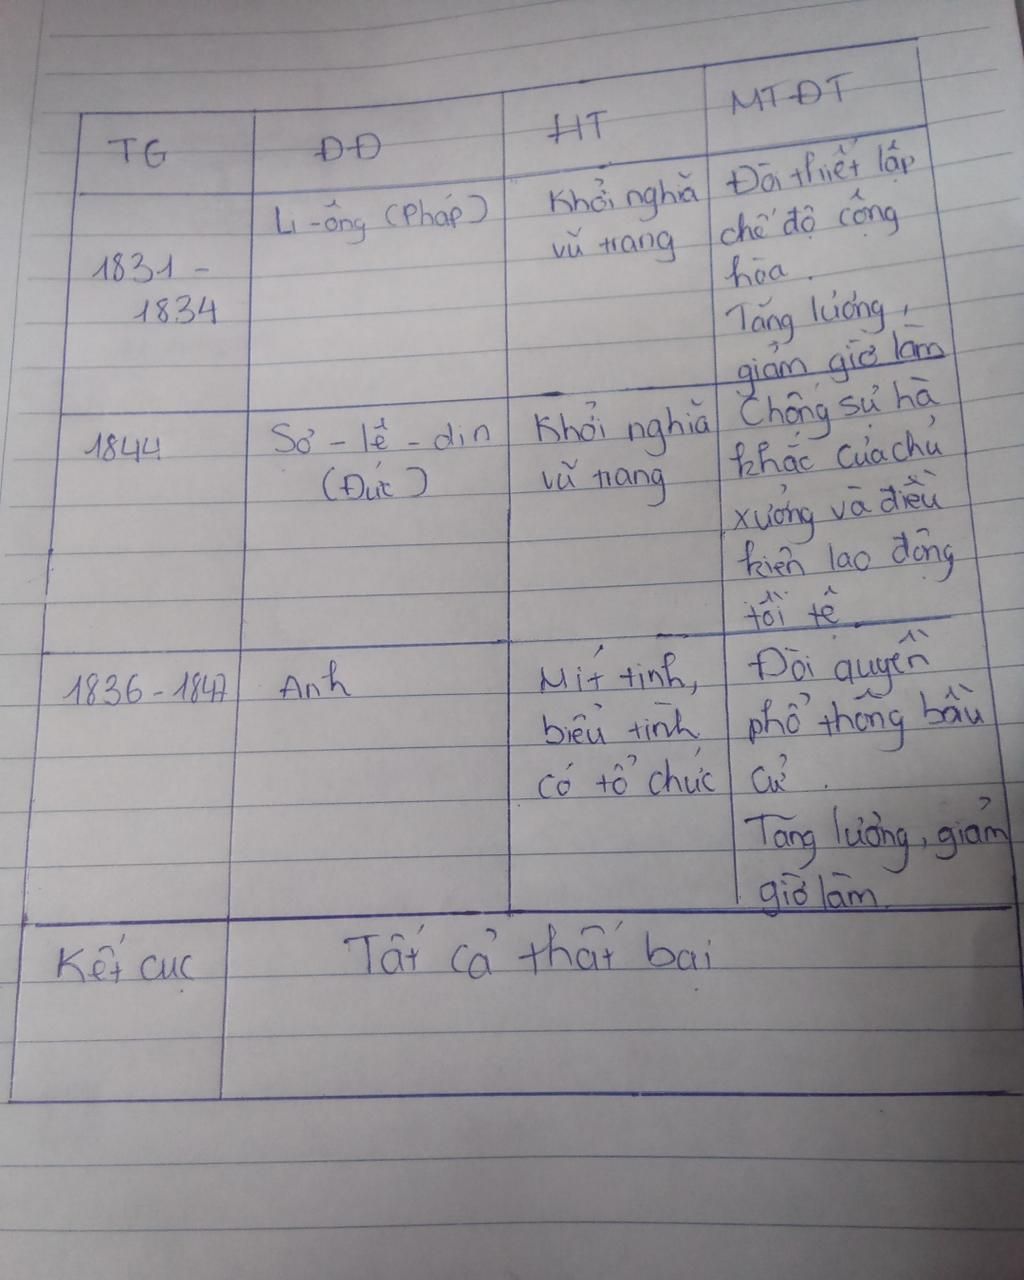 TG
ĐĐ
HT
MT-ĐT
1831 -
1834
Li-ông (Pháp)
Khởi nghĩa
vũ trang
Đòi thiết lập
chế độ cộng
hòa.
Tăng lương,
giảm giờ làm
1844
Sơ-lê-din
(Đức)
Khởi nghĩa
vũ trang
Chống sự hà
khắc của chủ
xưởng và điều
kiện lao động
tồi tệ
1836-1847
Anh
Mít tinh,
biểu tình
có tổ chức
Đòi quyền
phổ thông bầu
cử.
Tăng lương, giảm
giờ làm
Kết cục
Tất cả thất bại